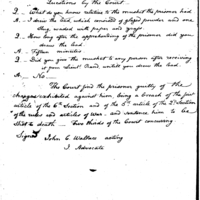 Questions by the Court
Q. What do you know relative to the musket the prisoner had
A. I drew the load, which consisted of glazed powder and one
slug, wadded with paper and
Q. How long after the apprehending of the prisoner did you
draw the load
A. Fifteen minutes
Q. Did you give the musket to any person after receiving
it from Lieut. until you drew the load.
A. No
The Court find the prisoner guilty of the
charges exhibited against him, being a breach of the first
article of the 6th Section and of the 5th article of the 2d Section
of the rules and articles of War, and sentence him to be
shot to death — two thirds of the Court concurring
Signed John C. Wallace acting
J Advocate